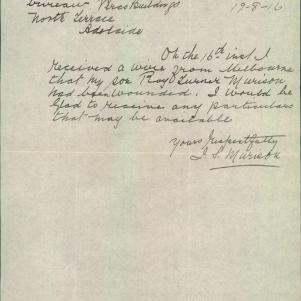 Bureau Verco Buildings 19-8-16
North Terrace
Adelaide
On the 16th inst I
received a wire from Melbourne
that my son Roy Turner Murison
had been wounded. I would be
glad to receive any particulars
that may be available
Yours respectfully
J. S. Murison